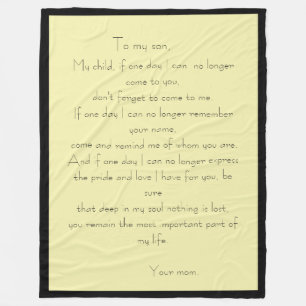 To my son,
My child, if one day I can no longer
come to you,
don't forget to come to me.
If one day I can no longer remember
your name,
come and remind me of whom you are.
And if one day I can no longer express
the pride and love I have for you, be
sure
that deep in my soul nothing is lost,
you remain the most important part of
my life.
Your mom.